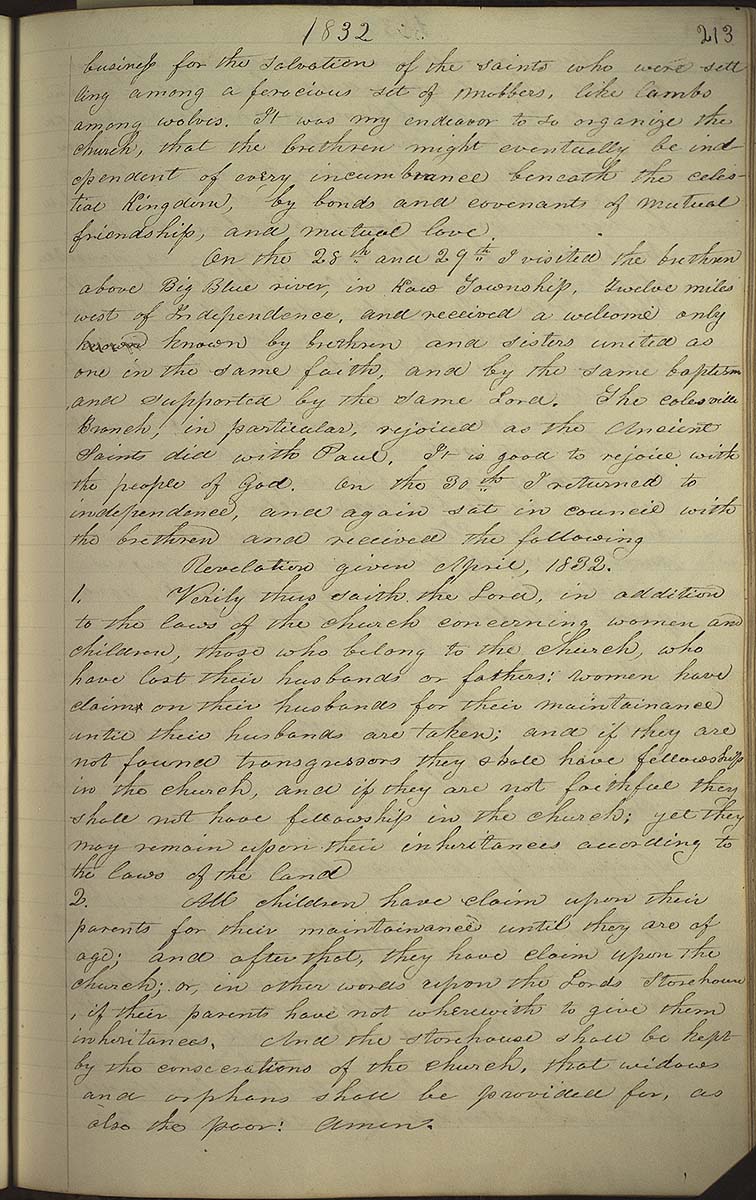 1832 213
business for the salvation of the saints who were sett
ling among a ferocious set of mobbers, like lambs
among wolves. It was my endeavor to so organize the
church, that the brethren might eventually be ind
ependent of every incumbrance beneath the celes-
tial Kingdom, by bonds and covenants of mutual
friendship, and mutual love
On the 28th and 29th I visited the brethren
above Big Blue river, in Kaw Township, twelve miles
west of Independence, and received a welcome only
known by brethren and sisters united as
one in the same faith, and by the same baptism
, and supported by the same Lord. The colesville
Branch, in particular, rejoiced as the Ancient
Saints did with Paul. It is good to rejoice with
the people of God. On the 30th I returned to
independence, and again sat in council with
the brethren and received the following
Revelation given April, 1832.
1. Verily thus saith the Lord, in addition
to the laws of the church concerning women and
children, those who belong to the church, who
have lost their husbands or fathers: women have
claim on their husbands for their maintainance
until their husbands are taken; and if they are
not found transgressors they shall have fellowship
in the church, and if they are not faithful they
shall not have fellowship in the church; yet they
may remain upon their inheritances according to
the laws of the land
2. All children have claim upon their
parents for their maintainance until they are of
age; and after that, they have claim upon the
church; or, in other words upon the Lords Storehouse
, if their parents have not wherewith to give them
inheritances. And the storehouse shall be kept
by the consecrations of the church, that widows
and orphans shall be provided for, as
also the poor: Amen.